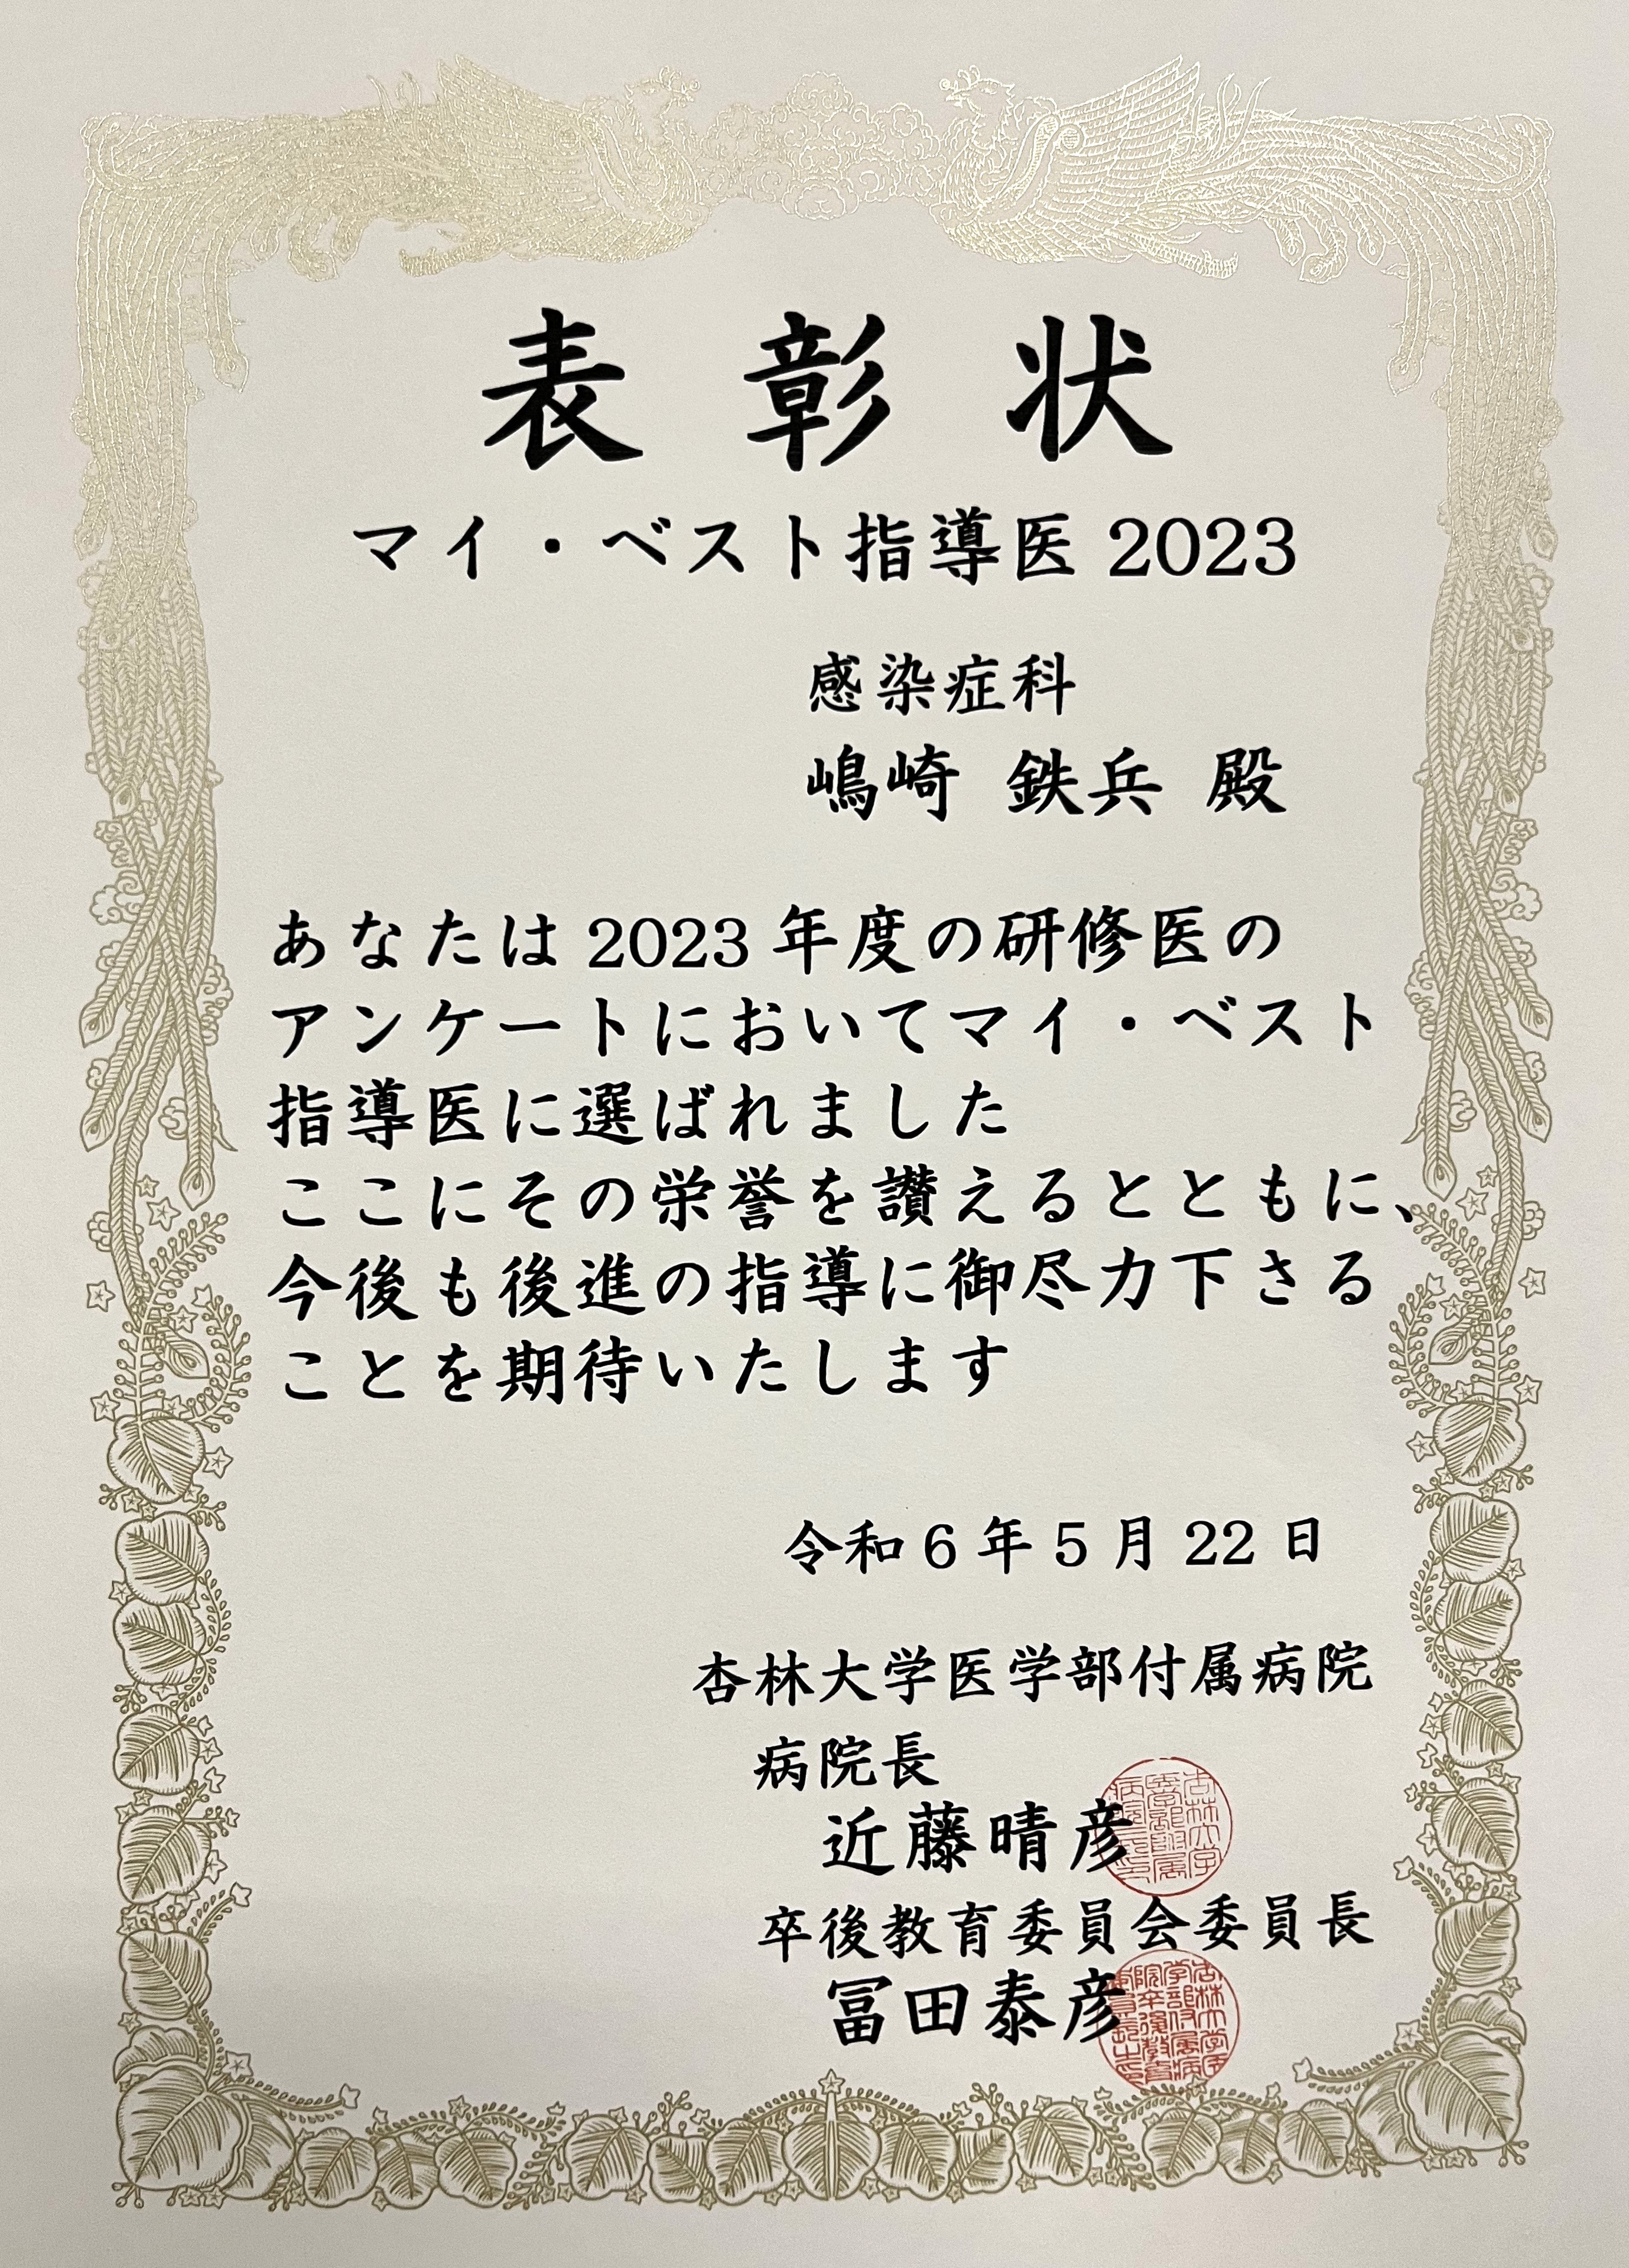 表彰状
マイ・ベスト指導医 2023
感染症科
嶋崎 鉄兵 殿
あなたは 2023 年度の研修医の
アンケートにおいてマイ・ベスト
指導医に選ばれました
ここにその栄誉を讃えるとともに、
今後も後進の指導に御尽力下さる
ことを期待いたします
令和 6 年 5 月 22 日
杏林大学医学部付属病院
病院長
近藤晴彦
卒後教育委員会委員長
冨田泰彦